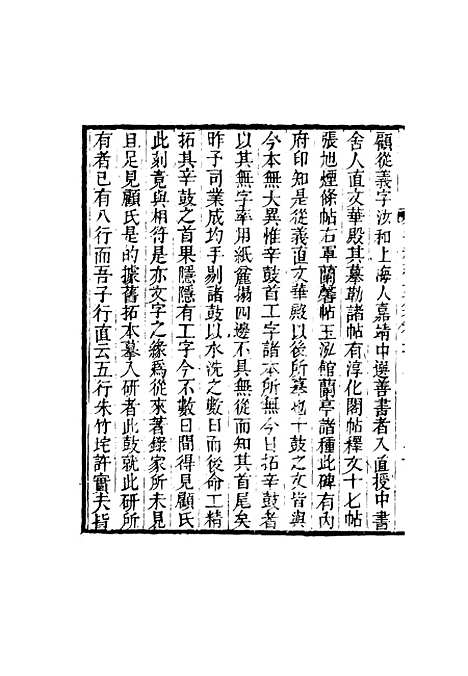 顧從義字汝和上海人嘉靖中選善書者入直授中書
舍人直文華殿其摹勒諸帖有淳化閣帖釋文十七帖
張旭煙條帖右軍蘭馨帖玉泓館蘭亭諸種此碑有內
府印知是從義直文華殿以後所摹也十鼓之文皆與
今本無大異惟辛鼓首工字諸本所無今日拓辛鼓者
以其無字率用紙麄搨四邊不具無從而知其首尾矣
昨予司業成均手剔諸鼓以水洗之數日而後命工精
拓其辛鼓之首果隱隱有工字今不數日間得見顧氏
此刻竟與相符是亦文字之緣爲從來著錄家所未見
且足見顧氏是的據舊拓本摹入研者此鼓就此研所
有者已有八行而吾子行直云五行朱竹垞許實夫皆